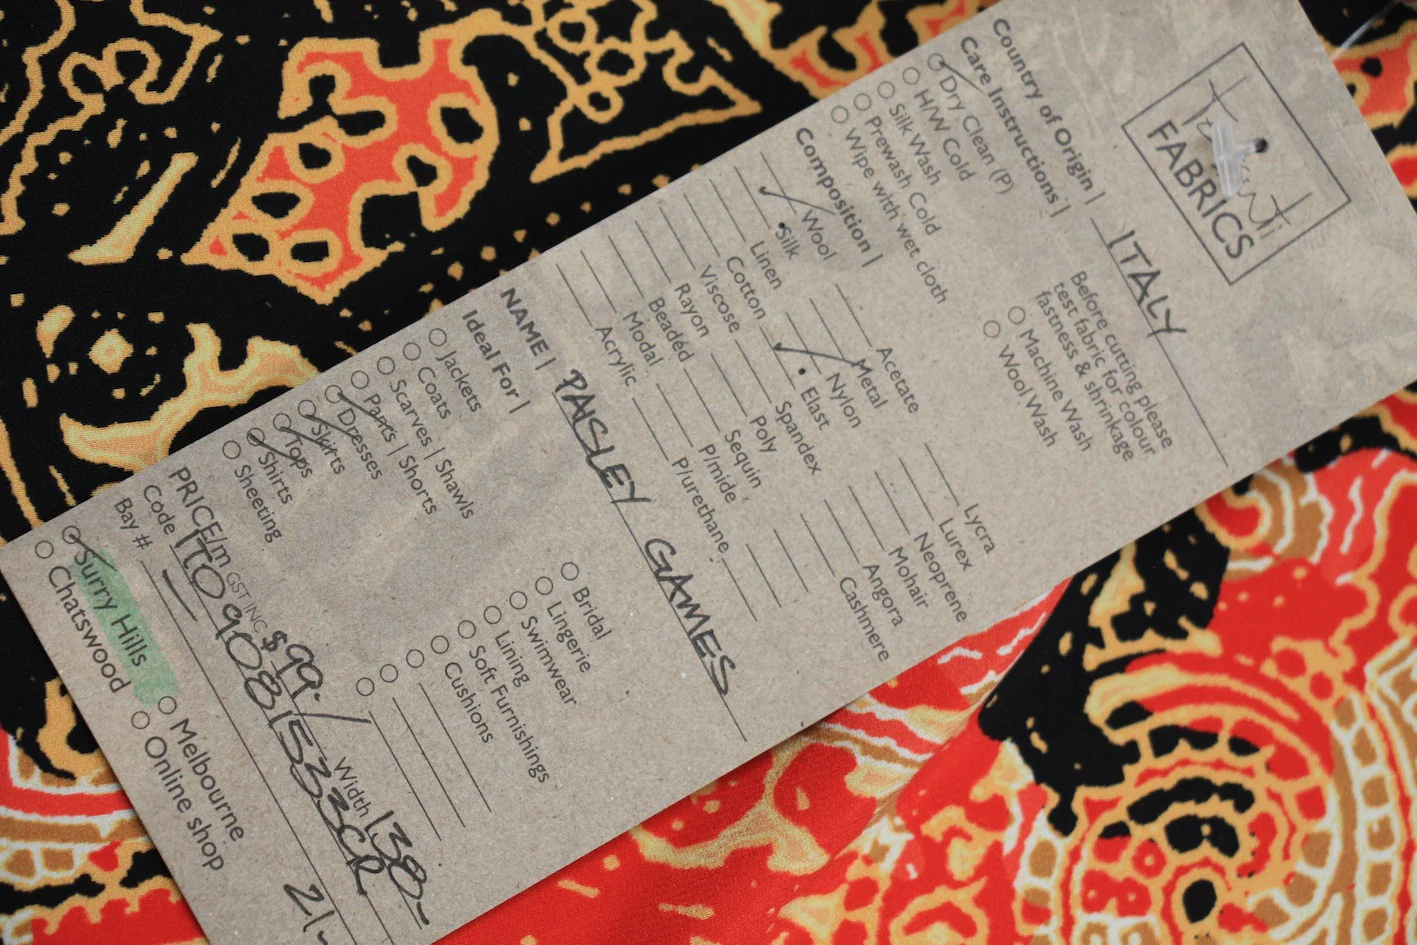 FABRICS
Country of Origin | ITALY
Care Instructions |
Before cutting please
test fabric for colour
fastness & shrinkage
Dry Clean (P)
H/W Cold
Silk Wash
Prewash Cold
Wipe with wet cloth
Machine Wash
Wool Wash
Composition |
Wool
Silk
Linen
Cotton
Viscose
Rayon
Beaded
Modal
Acrylic
Acetate
Metal
Nylon
Elast
Spandex
Poly
Sequin
P/mide
P/urethane
Lycra
Lurex
Neoprene
Mohair
Angora
Cashmere
NAME | PAISLEY GAMES
Ideal For |
Jackets
Coats
Scarves | Shawls
Pants | Shorts
Dresses
Skirts
Tops
Shirts
Sheeting
Bridal
Lingerie
Swimwear
Lining
Soft Furnishings
Cushions
PRICE/m GST INC $99.- Width 138-
Code
Bay #
Surry Hills
Chatswood
Melbourne
Online shop